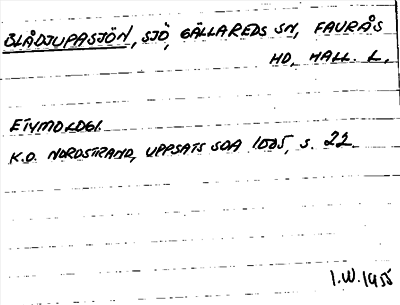 BLÅDJUPASJÖN, SJÖ, GÄLLAREDS SN, FAURÅS
HD, HALL. L.
ETYMOLOGI.
K.O. NORDSTRAND, UPPSATS SOA 1005, S. 22
I.W. 1955